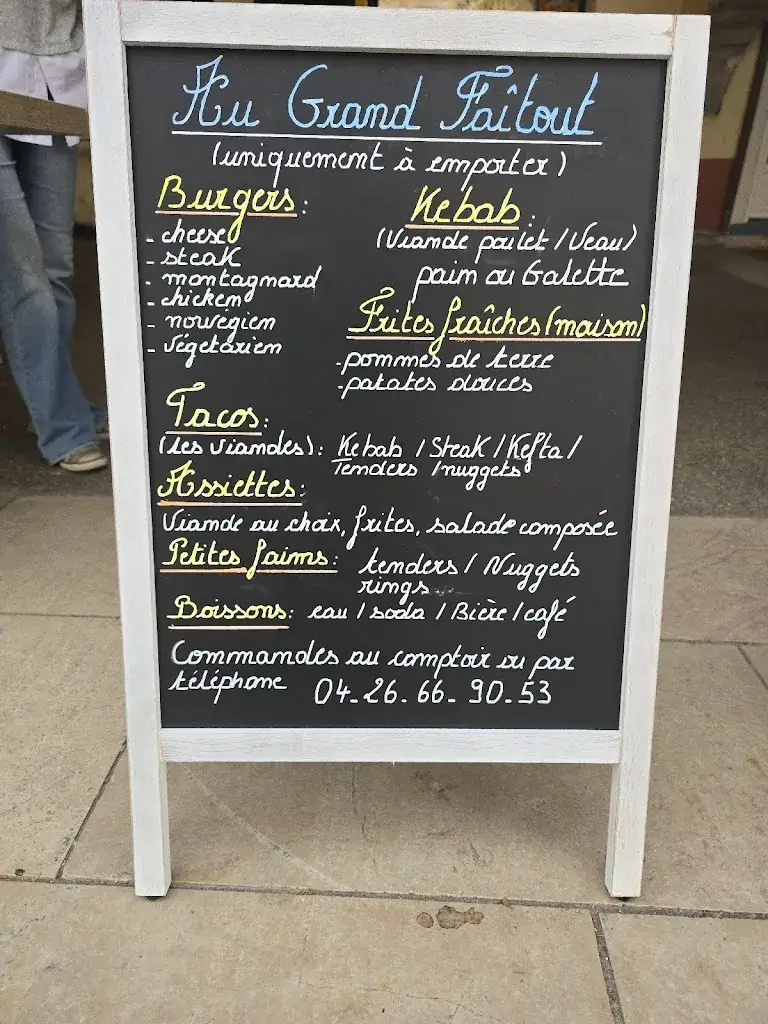 Au Grand Faîtout
(uniquement à emporter)
Burgers:
- cheese
- steak
- montagnard
- chicken
- norvégien
- végétarien
Kebab:
(Viande poulet / Veau)
pain ou Galette
Frites fraîches (maison)
- pommes de terre
- patates douces
Tacos:
(les viandes): Kebab / Steak / Kefta /
Tenders / nuggets
Assiettes:
Viande au choix, frites, salade composée
Petites faims: tenders / Nuggets
rings
Boissons: eau / soda / Bière / café
Commandes au comptoir ou par
téléphone 04-26-66-90-53